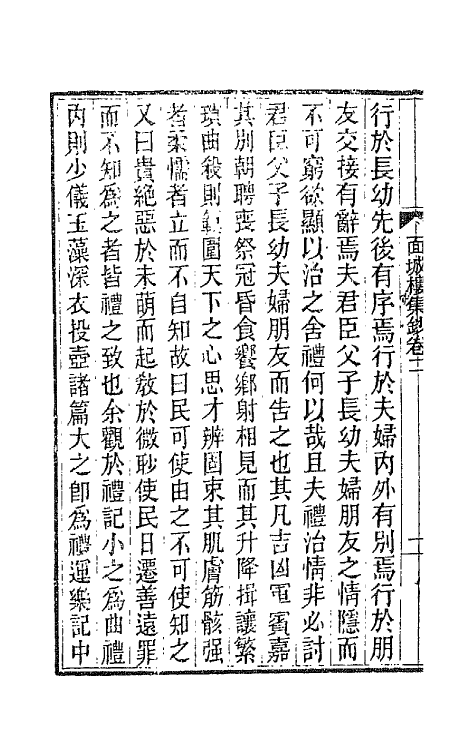 面城樓集鈔卷二
行於長幼先後有序焉行於夫婦內外有別焉行於朋
友交接有辭焉夫君臣父子長幼夫婦朋友之情隱而
不可窮欲顯以治之舍禮何以哉且夫禮治情非必討
君臣父子長幼夫婦朋友而告之也其凡吉凶軍賓嘉
其別朝聘喪祭冠昏食饗鄉射相見而其升降揖讓繁
瑣曲殺則範圍天下之心思才辨固束其肌膚筋骸强
者柔懦者立而不自知故曰民可使由之不可使知之
又曰貴絕惡於未萌而起敎於微眇使民日遷善遠罪
而不知爲之者皆禮之致也余觀於禮記小之爲曲禮
內則少儀玉藻深衣投壺諸篇大之卽爲禮運樂記中